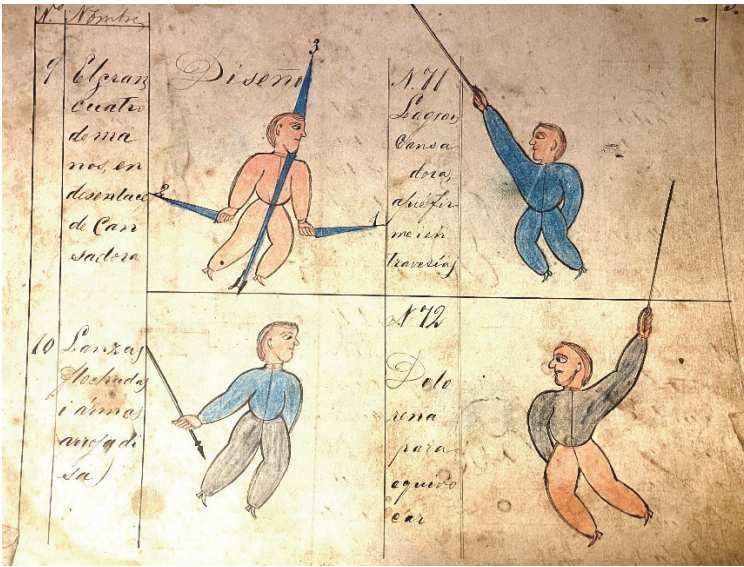 N.º Nombre
9 El gran
cuatro
de ma
nos, en
desenlace
de Can
sadora
Diseño
3
2
1
4
N. 71
La gran
Cansa
dora,
a pié fir
me i en
travesía
10 Lanzas
flechadas
i armas
arrojadi
sas
N 72
Polo
rena
para
equivo
car